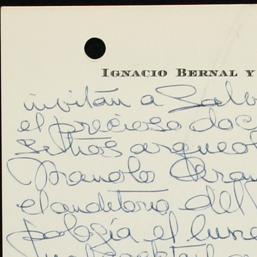 IGNACIO BERNAL Y
invitan a Salv
el precioso doc
sitios arqueol
Manolo
el auditorio del
pología el lune